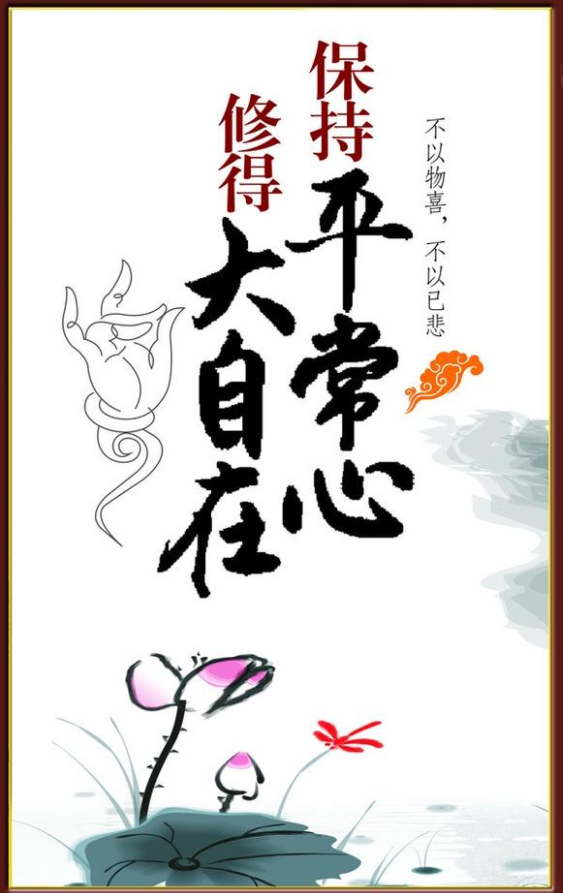 不以物喜，不以已悲
保持平常心
修得大自在